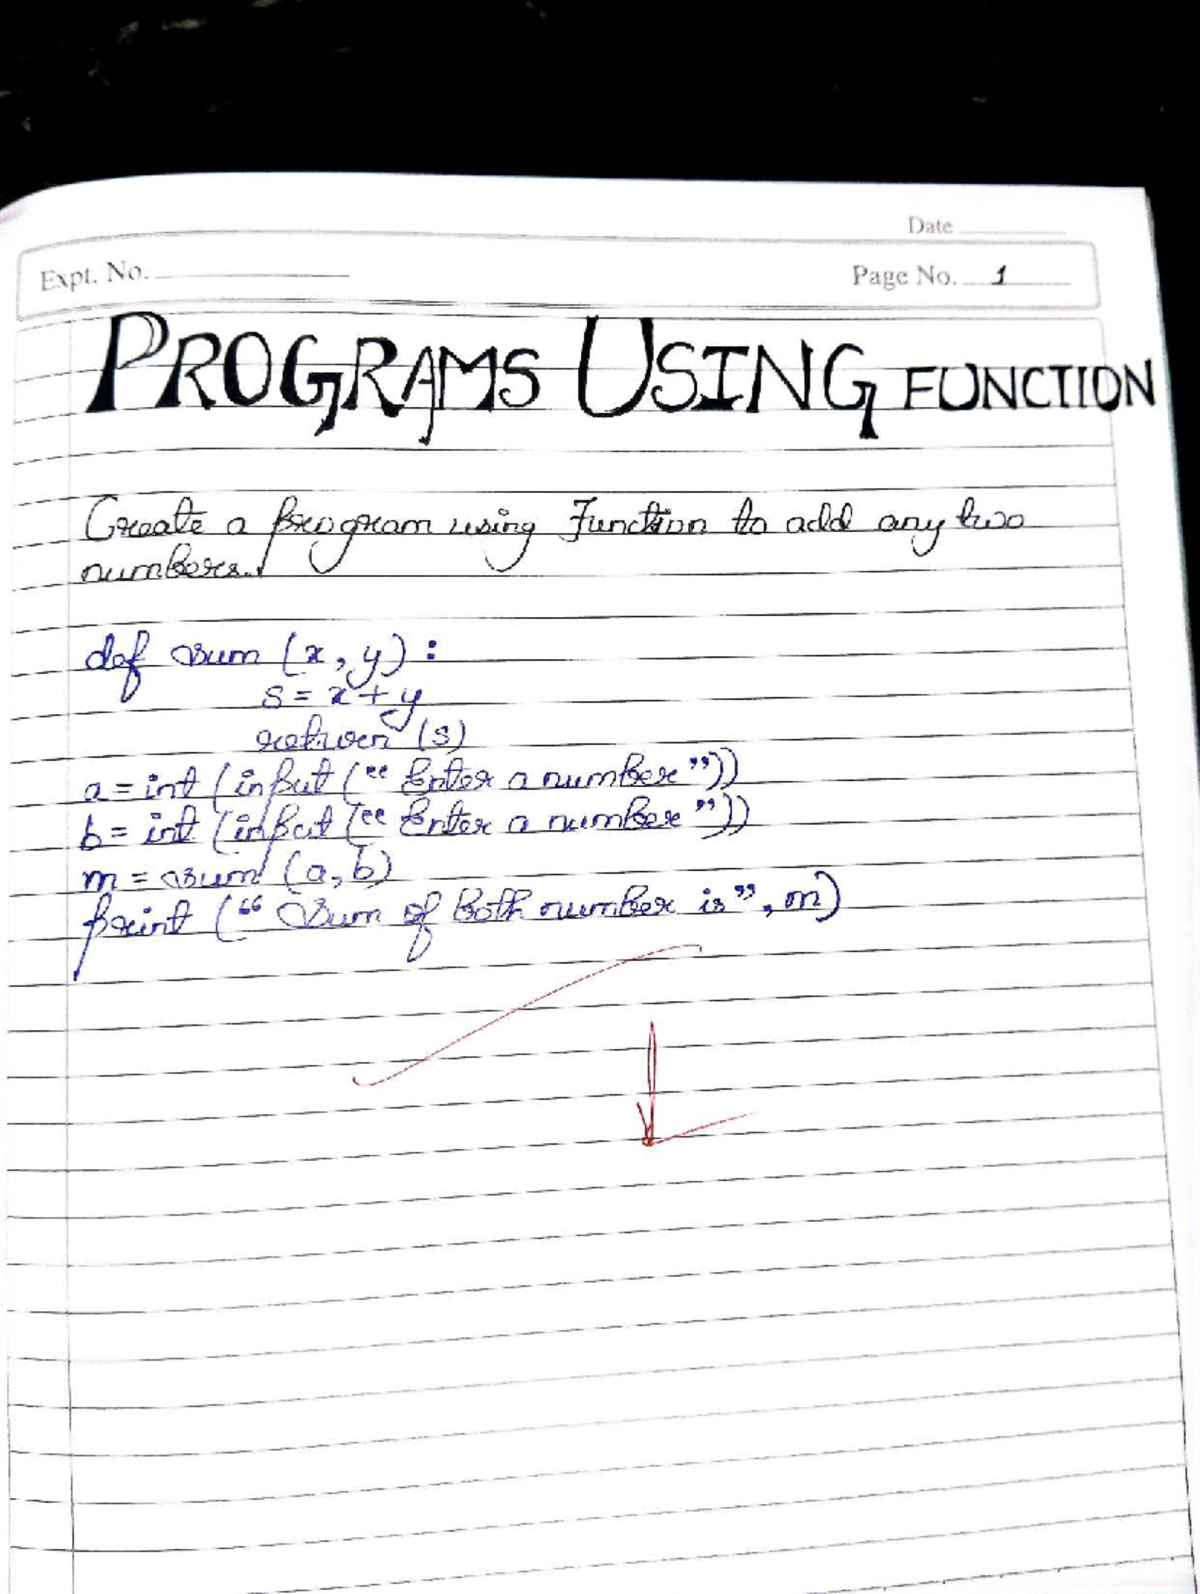 Date
Expt. No.
Page No. 1
PROGRAMS USING FUNCTION
Create a program using Function to add any two
numbers.
def sum (x, y) :
s = x + y
return (s)
a = int (input (“ Enter a number ”))
b = int (input (“ Enter a number ”))
m = sum (a, b)
print (“ Sum of both number is ”, m)